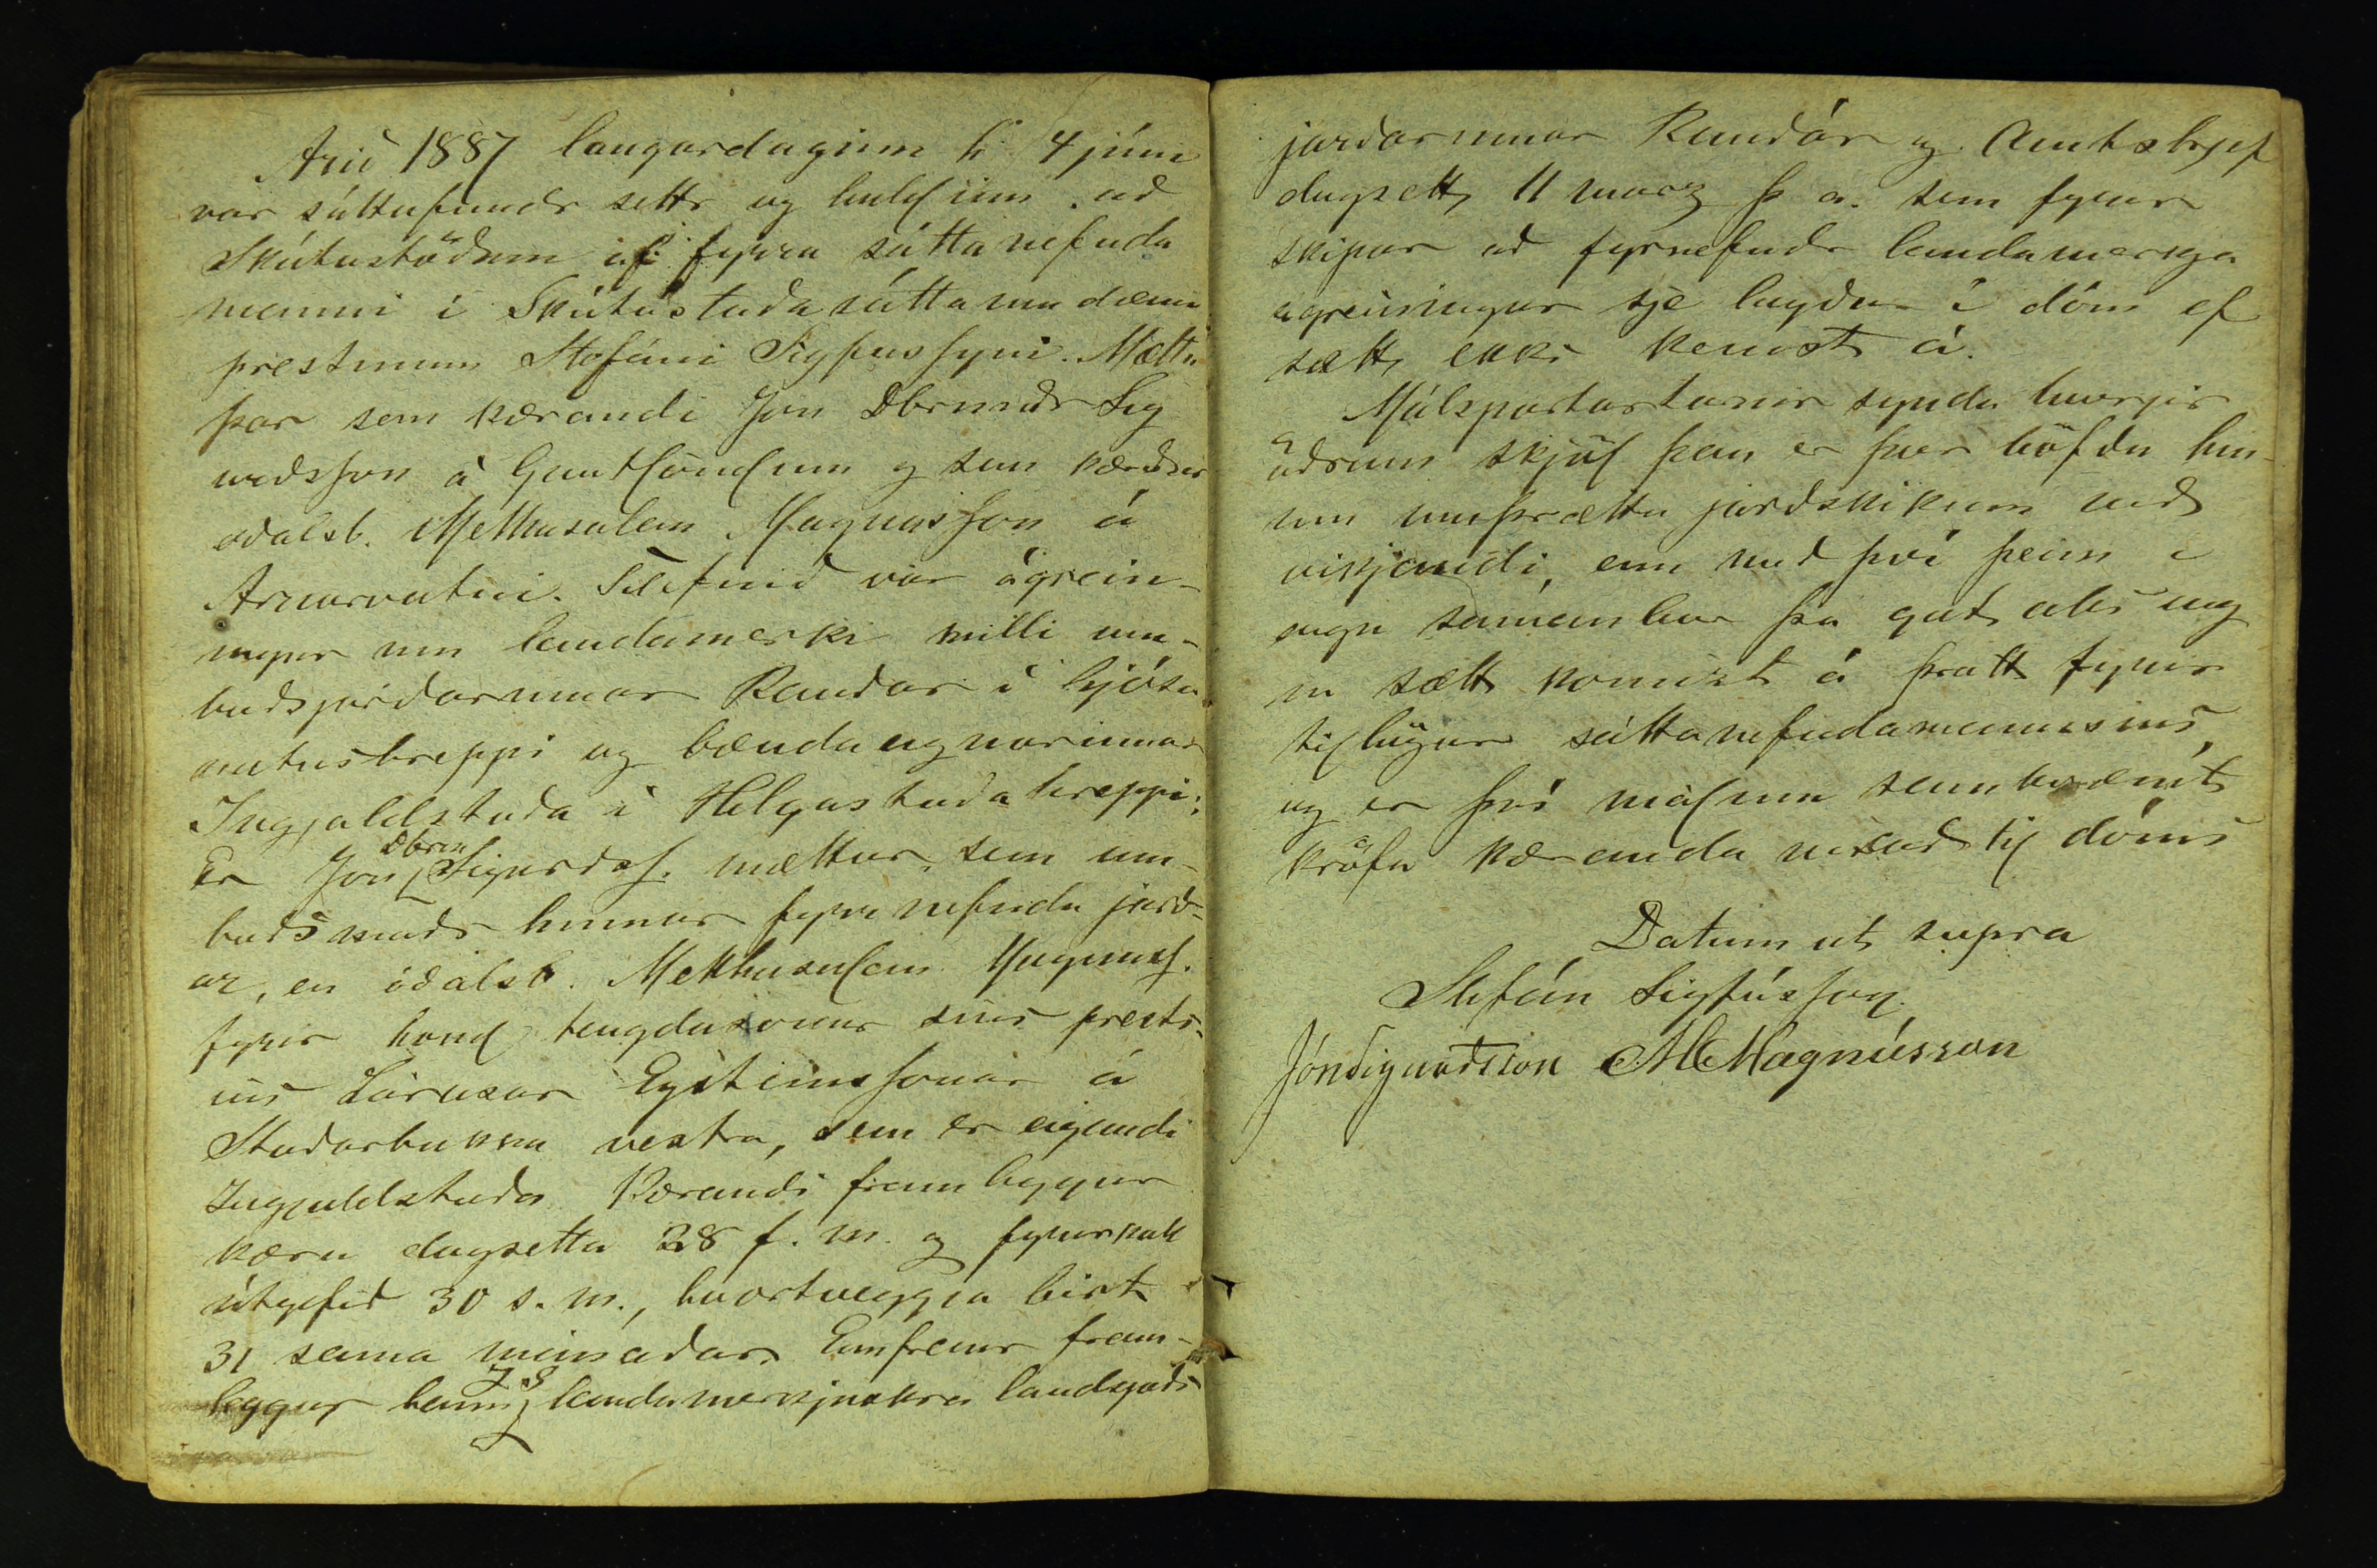 Árið 1887 laugardaginn h. 4 júni
var sáttafundr settr og haldinn að
Skútustöðum af fyrra sáttanefnda
manni í Skútustaða sáttaumdæmi
prestinum Stefáni Sigfússyni. Mætti
þar sem kærandi Jón Dbrmaðr Sig
urðsson á Gautlöndum og sem kærður
óðalsb. Methusalem Magnússon á
Arnarvatni. Tilefnið var ágrein-
ingur um landamerki milli um-
boðsjarðarinnar Rauðár í Ljósa
vatnshreppi og bændaeignarinnar
Ingjaldstaða í Helgastaða hreppi;
Er Jón Dbrm Sigurðss. mættur sem um-
boðsmaðr hinnar fyrrnefndu jarð-
ar, en óðalsb. Methusalem Magnúss.
fyrir hönd tengdasonar síns prests-
ins Lárusar Eysteinssonar á
Staðarbakka vestra, sem er eigandi
Ingjaldstaða. Kærandi framleggur
kæru dagsetta 28 f. m. og fyrirkall
útgefið 30 s. m., hvortveggja birt
31 sama mánaðar. Ennfremr fram-
leggur hann J. S. landamerkjaskrá landsjóðs
jarðarinnar Rauðár og Amtsbrjef
dagsett 11 marz þ. a. sem fyrir
skipar að fyrnefndr landamerkja
ágreiningur sje lagður í dóm ef
sætt ekki kemst á.
Málspartarnir sýndu hverjir
öðrum skjöl þau er þeir höfðu hin-
um umþrættu jarðskikum við
víkjandi, enn með því þeim í
engu saman bar þá gat alls eng
in sætt komizt á þrátt fyrir
tillögur sáttanefndamannsins,
og er því málinu samkvæmt
kröfu kæranda vísað til dóms
Datum ut supra
Stefán Sigfússon.
Jón Sigurðsson M Magnússon